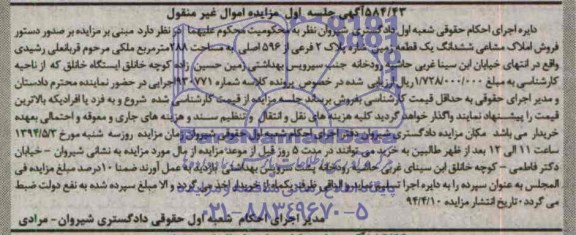 ۵۸۴/۴۳ آگهی جلسه اول مزایده اموال غیر منقول
دایره اجرای احکام حقوقی شعبه اول دادگستری شیروان نظر به محکومیت محکوم علیهما در نظر دارد مبنی بر مزایده بر صدور دستور
فروش املاک مشاعی ششدانگ یک قطعه زمین پلاک ۲ فرعی از ۵۹۶ اصلی به مساحت ۲۸۸ مترمربع ملکی مرحوم قربانعلی رشیدی
واقع در انتهای خیابان ابن سینا غربی حاشیه رودخانه جنب سرویس بهداشتی زمین حسین زاده کوچه خانلق ایستگاه خانلق که از ناحیه
کارشناسی به مبلغ ۱/۷۲۸/۰۰۰/۰۰۰ ریال ارزیابی شده در خصوص پرونده کلاسه شماره ۹۳۰۷۷۱ اجرایی در حضور نماینده محترم دادستان
و مدیر اجرای حقوقی به حداقل قیمت کارشناسی بفروش برساند جلسه مزایده از قیمت کارشناسی شده شروع و به فرد یا افرادیکه بالاترین
قیمت را پیشنهاد نمایند واگذار خواهد گردید کلیه هزینه های نقل و انتقال و تنظیم سند و هزینه های جاری و معوقه و احتمالی بعهده
خریدار می باشد مکان مزایده دادگستری شیروان دفتر اجرای احکام شعبه اول حقوقی شیروان زمان مزایده روز سه شنبه مورخ ۱۳۹۴/۵/۳
ساعت ۱۱ الی ۱۲ بعد از ظهر طالبین به خرید می توانند در مدت ۵ روز قبل از موعد مزایده از مال مورد مزایده به نشانی شیروان - خیابان
دکتر فاطمی - کوچه خانلق ابن سینای غربی حاشیه رودخانه پشت سرویس بهداشتی بازدید به عمل آورند ضمنا ۱۰ درصد مبلغ مزایده فی
المجلس به عنوان سپرده را به دایره اجرا تسلیم نماید و الباقی ظرف یکماه از خریدار اخذ می گردد و الا مبلغ سپرده شده به نفع دولت ضبط
می گردد تاریخ انتشار مزایده ۹۴/۴/۱۰
مدیر اجرای احکام شعبه اول حقوقی دادگستری شیروان - مرادی
ParsNamadData
۰۲۱-۸۸۳۴۹۶۷۰-۵